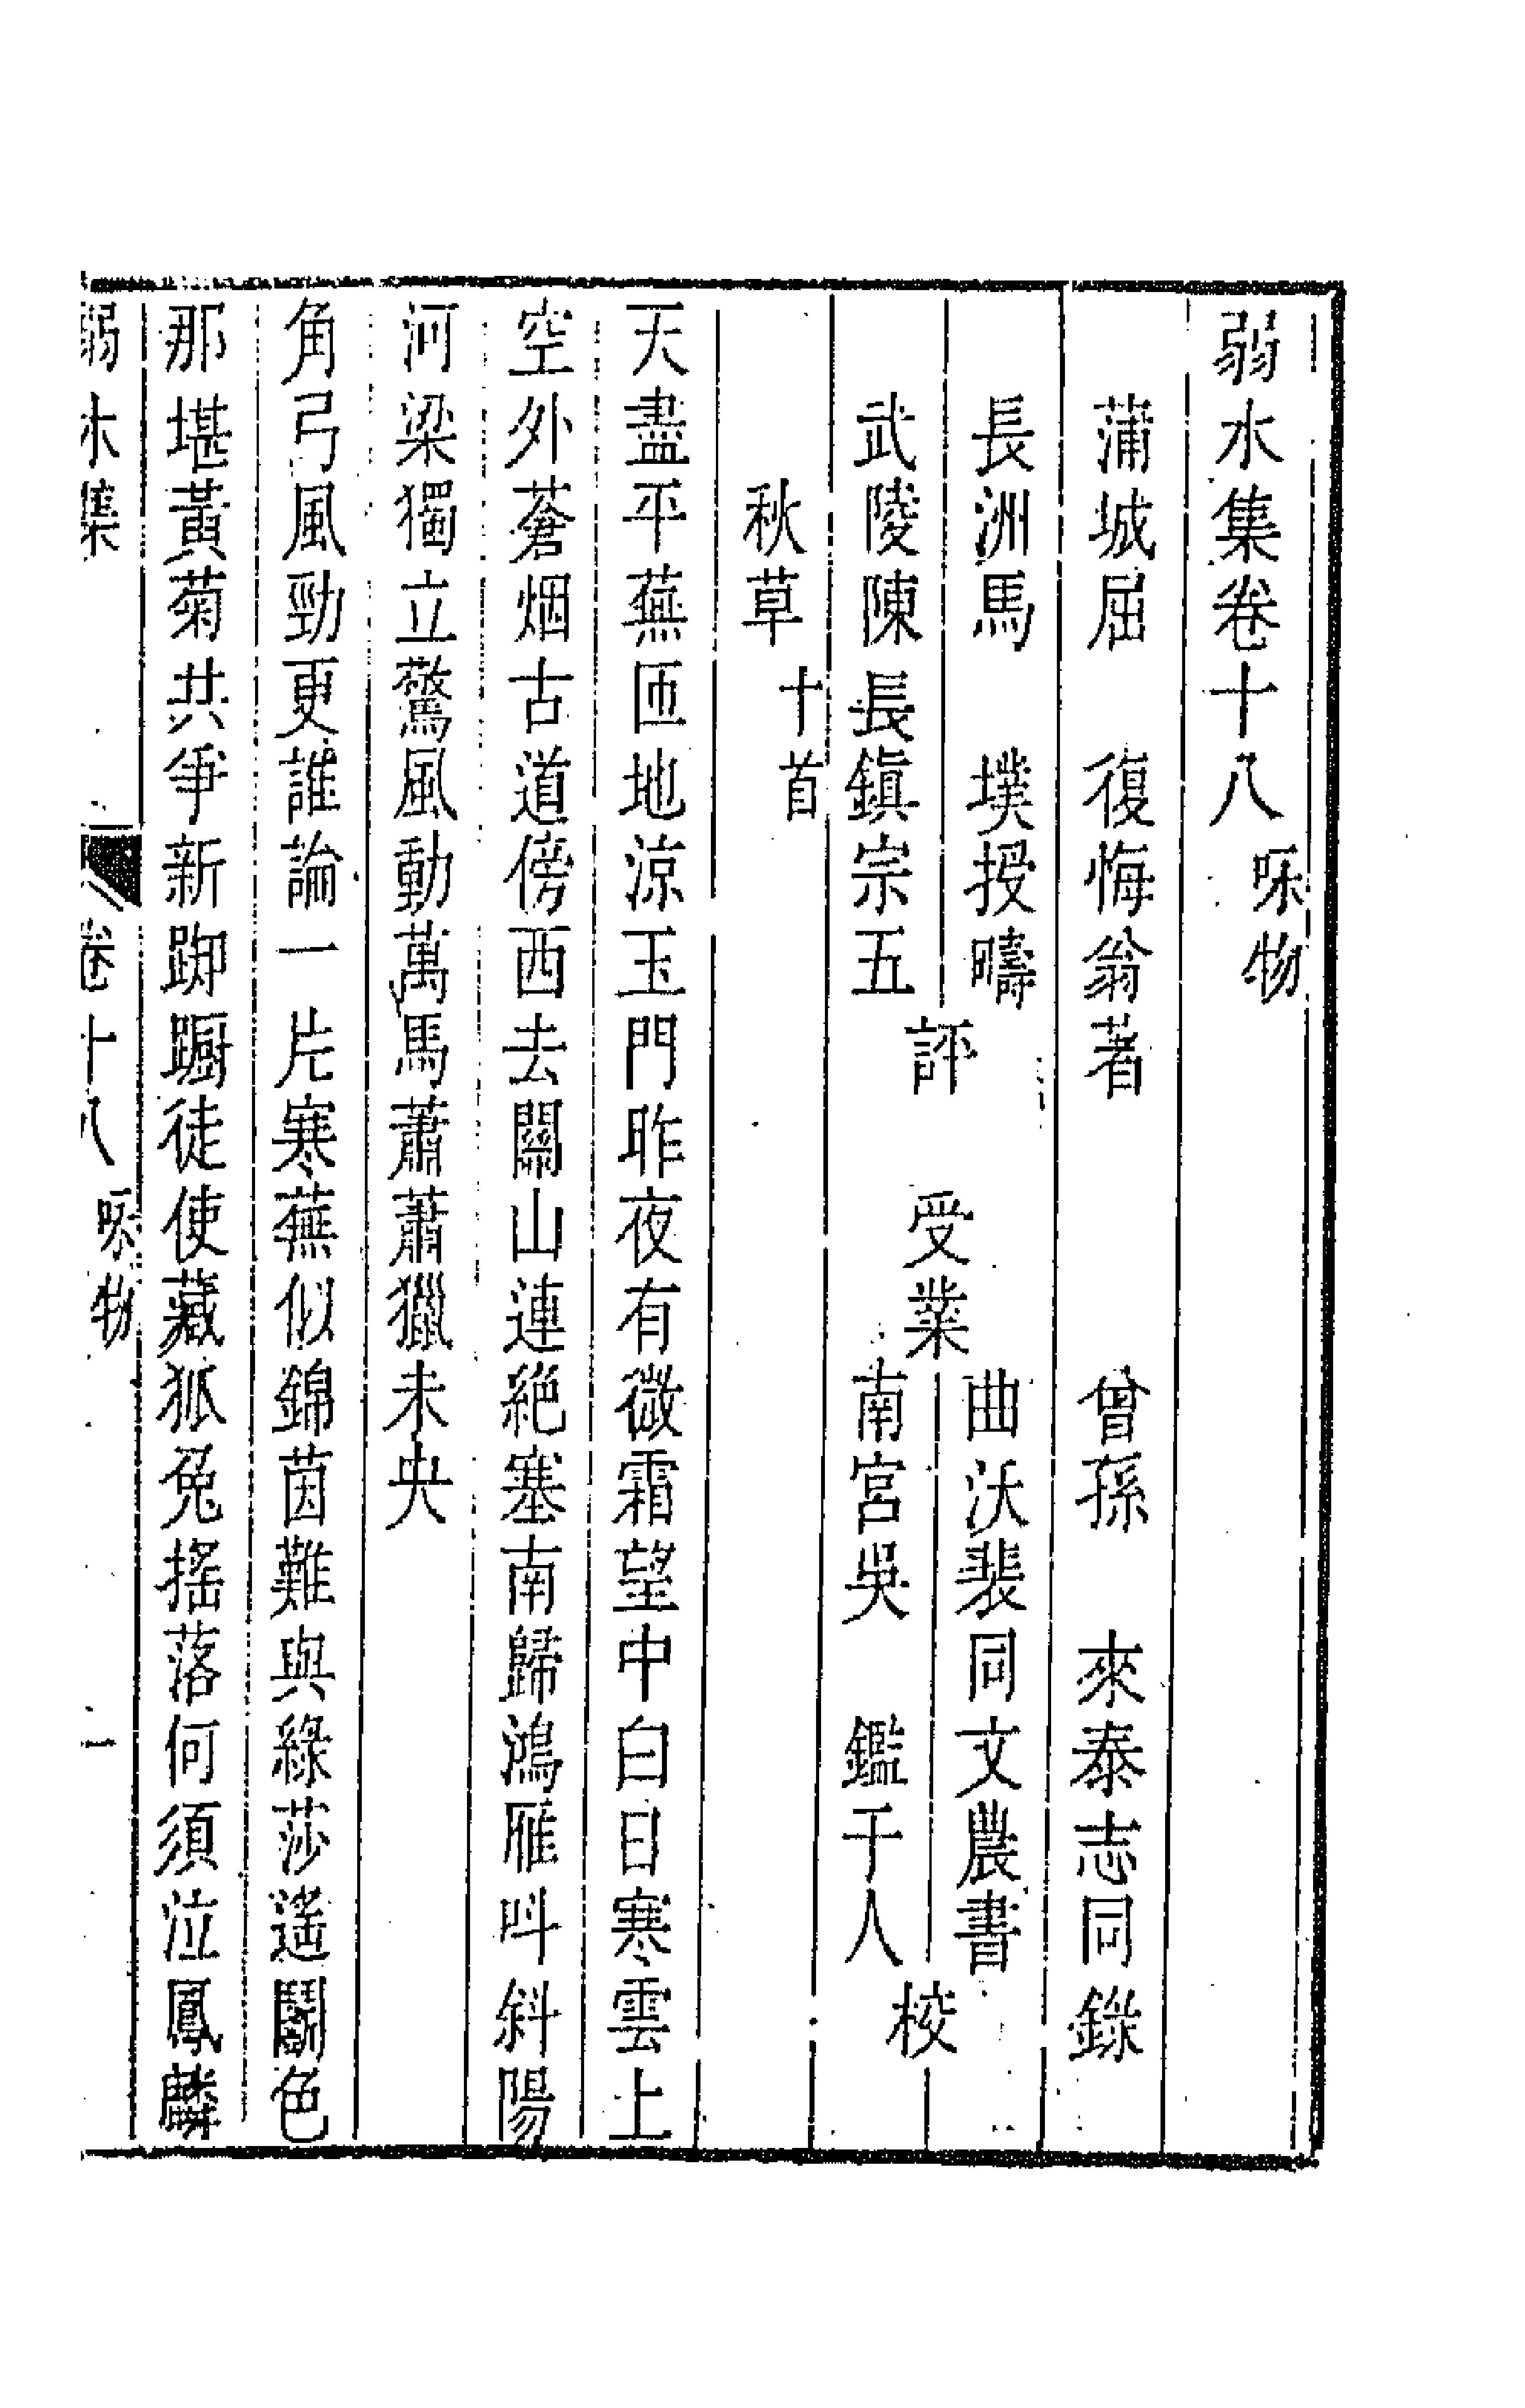 弱水集卷十八 咏物
蒲城屈 復悔翁著 曾孫 來泰志同錄
長洲馬 墣授疇
武陵陳長鎭宗五
評 受業
曲沃裴同文農書
南宮吳 鑑千人
校
秋草 十首
天盡平蕪匝地涼玉門昨夜有微霜望中白日寒雲上
空外蒼烟古道傍西去關山連絶塞南歸鴻雁呌斜陽
河梁獨立驚風動萬馬蕭蕭獵未央
角弓風勁更誰論一片寒蕪似錦茵難與綠莎遙鬭色
那堪黃菊共爭新踟蹰徒使藏狐兔搖落何須泣鳳麟
弱水集 卷十八 咏物 一